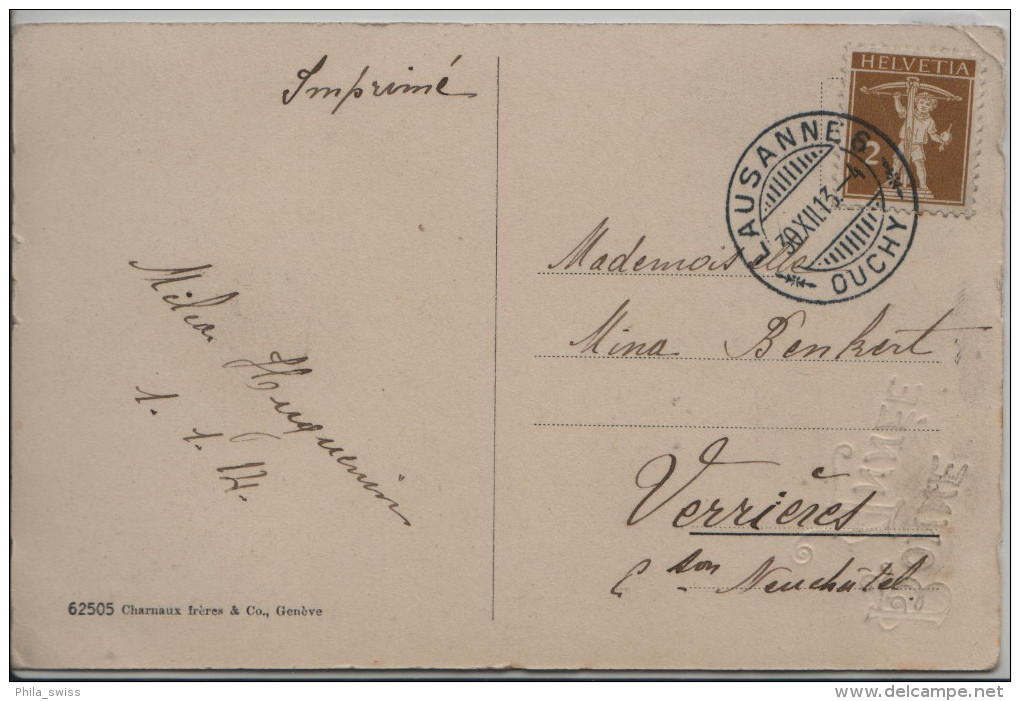 Imprimé
HELVETIA
2
LAUSANNE 6
30.XII.13.-4
OUCHY
Mademoiselle
Mina Benkert
Verrières
Cton Neuchâtel.
Huguenin
1. 1. 14.
BONNE
ANNÉE
62505 Charnaux frères & Co., Genève
Phila_swiss
www.delcampe.net